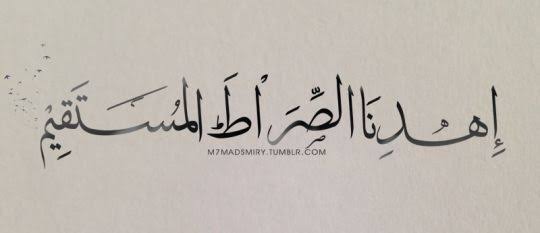 إِهْدِنَا الصِّرَاْطَ المُسْتَقِيْمَ
M7MADSMIRY.TUMBLR.COM